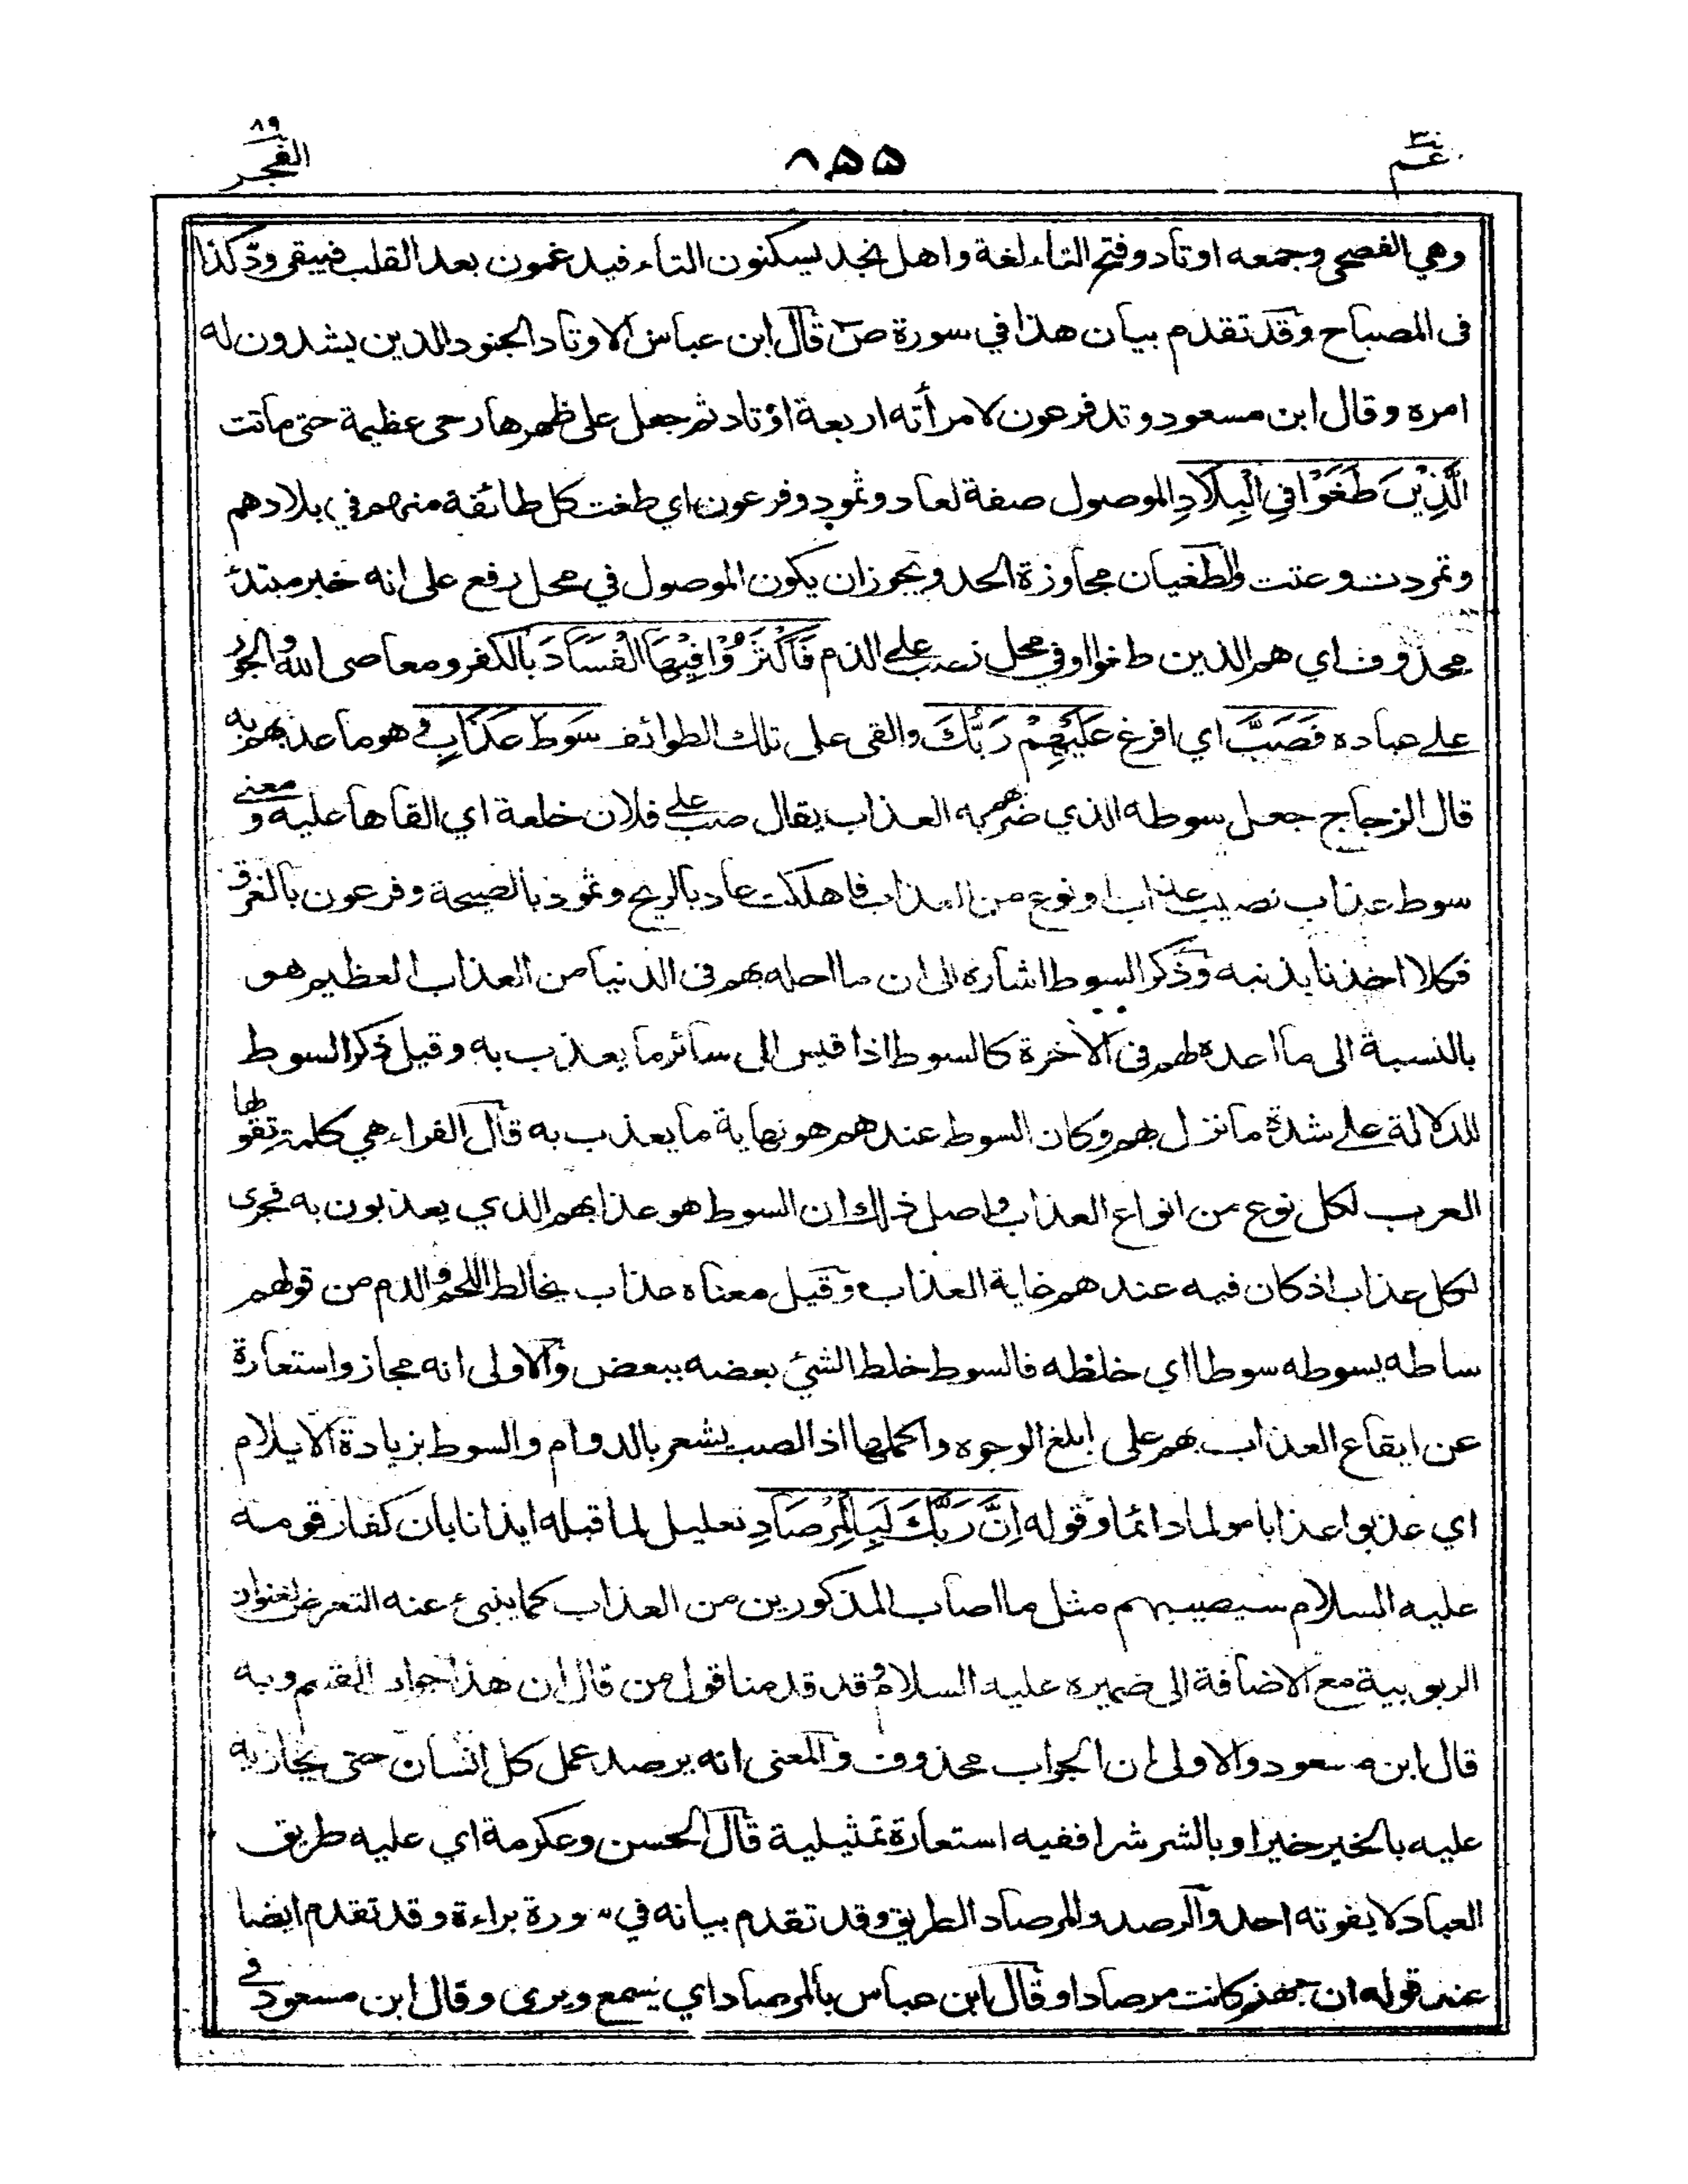 عم ٣٠
٨٥٥
الفجر ٨٩
وهي الفصحى وجمعه اوتاد وفتح التاء لغة واهل نجد يسكنون التاء فيدغمون بعد القلب فيبقى ودّ كذا
في المصباح وقد تقدم بيان هذا في سورة ص قال ابن عباس الاوتاد الجنود الذين يشدون له
امره وقال ابن مسعود وتد فرعون لامرأته اربعة اوتاد ثم جعل على ظهرها رحى عظيمة حتى ماتت
الَّذِيْنَ طَغَوْا فِي الْبِلَادِ الموصول صفة لعاد وثمود وفرعون اي طغت كل طائفة منهم في بلادهم
وتمردت وعتت والطغيان مجاوزة الحد ويجوز ان يكون الموصول في محل رفع على انه خبر مبتدئ
محذوف اي هم الذين طغوا او في محل نصب على الذم فَاَكْثَرُوْا فِيْهَا الْفَسَادَ بالكفر ومعاصى الله والجور
على عباده فَصَبَّ اي افرغ عَلَيْهِمْ رَبُّكَ والقى على تلك الطوائف سَوْطَ عَذَابٍ وهو ما عذبهم به
قال الزجاج جعل سوطه الذي ضربهم به العذاب يقال صب على فلان خلعة اي القاها عليه ومعنى
سوط عذاب نصيب عذاب او نوع من العذاب فاهلكت عاد بالريح وثمود بالصيحة وفرعون بالغرق
فكلا اخذنا بذنبه وذكر السوط اشارة الى ان ما احله بهم في الدنيا من العذاب العظيم هو
بالنسبة الى ما اعده لهم في الآخرة كالسوط اذا قيس الى سائر ما يعذب به وقيل ذكر السوط
للدلالة على شدة ما نزل بهم وكان السوط عندهم هو نهاية ما يعذب به قال الفراء هي كلمة تقولها
العرب لكل نوع من انواع العذاب واصل ذلك ان السوط هو عذابهم الذي يعذبون به فجرى
لكل عذاب اذ كان فيه عندهم غاية العذاب وقيل معناه عذاب يخالط اللحم والدم من قولهم
ساطه يسوطه سوطا اي خلطه فالسوط خلط الشئ بعضه ببعض والاولى انه مجاز واستعارة
عن ايقاع العذاب بهم على ابلغ الوجوه واكملها اذ الصب يشعر بالدوام والسوط بزيادة الايلام
اي عذبوا عذابا مولما دائما وقوله اِنَّ رَبَّكَ لَبِالْمِرْصَادِ تعليل لما قبله ايذانا بان كفار قومه
عليه السلام سيصيبهم مثل ما اصاب المذكورين من العذاب كما ينبئ عنه التعرض لعنوان
الربوبية مع الاضافة الى ضميره عليه السلام وقد قدمنا قول من قال ان هذا جواب القسم وبه
قال ابن مسعود والاولى ان الجواب محذوف والمعنى انه يرصد عمل كل انسان حتى يجازيه
عليه بالخير خيرا وبالشر شرا ففيه استعارة تمثيلية قال الحسن وعكرمة اي عليه طريق
العباد لا يفوته احد والرصد والمرصاد الطريق وقد تقدم بيانه في سورة براءة وقد تقدم ايضا
عند قوله ان جهنم كانت مرصادا وقال ابن عباس بالمرصاد اي يسمع ويرى وقال ابن مسعود في